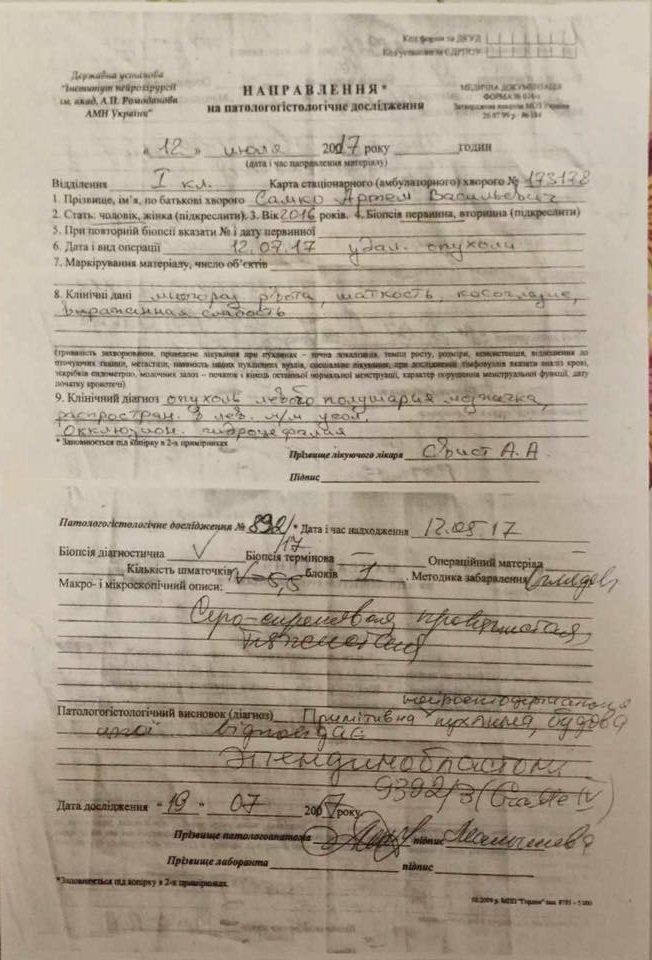 Код форми за ДКУД
Код установи за ЄДРПОУ
Державна установа
"Інститут нейрохірургії
ім. акад. А.П. Ромоданова
АМН України"
НАПРАВЛЕННЯ*
на патологогістологічне дослідження
МЕДИЧНА ДОКУМЕНТАЦІЯ
ФОРМА № 014-у
Затверджена наказом МОЗ України
26.07.99 р. № 184
« 12 » июля 2017 року годин
(дата і час направлення матеріалу)
Відділення I кл. Карта стаціонарного (амбулаторного) хворого № 173178
1. Прізвище, ім'я, по батькові хворого Самко Артем Васильевич
2. Стать: чоловік, жінка (підкреслити). 3. Вік 2016 років. 4. Біопсія первинна, вторинна (підкреслити)
5. При повторній біопсії вказати № і дату первинної
6. Дата і вид операції 12.07.17 удал. опухоли
7. Маркірування матеріалу, число об'єктів
8. Клінічні дані многораз рвота, шаткость, косоглазие,
выраженная слабость
(тривалість захворювання, проведене лікування при пухлинах – точна локалізація, темпи росту, розміри, консистенція, відношення до
оточуючих тканин, метастази, наявність інших пухлинних вузлів, спеціальне лікування, при дослідженні лімфовузлів вказати аналіз крові,
зскрібків ендометрію, молочних залоз – початок і кінець останньої нормальної менструації, характер порушення менструальної функції, дату
початку кровотечі)
9. Клінічний діагноз опухоль левого полушария мозжечка,
распростран. в лев. м/м угол.
Окклюзион. гидроцефалия
* Заповнюється під копірку в 2-х примірниках
Прізвище лікуючого лікаря А.А
Підпис
Патологогістологічне дослідження № 892/17 * Дата і час надходження 12.05.17
Біопсія діагностична Біопсія термінова – Операційний матеріал –
Кількість шматочків блоків 1. Методика забарвлення
Макро- і мікроскопічний описи:
Серо-сиреневая
нейроектодермальна
Патологогістологічний висновок (діагноз) Примітивна пухлина, будова
якої відповідає
Эпендимобластомі
9392/3 (Grade IV)
Дата дослідження " 19 " 07 2007 року
Прізвище патологоанатома підпис Малышева
Прізвище лаборанта підпис
*Заповнюється під копірку в 2-х примірниках